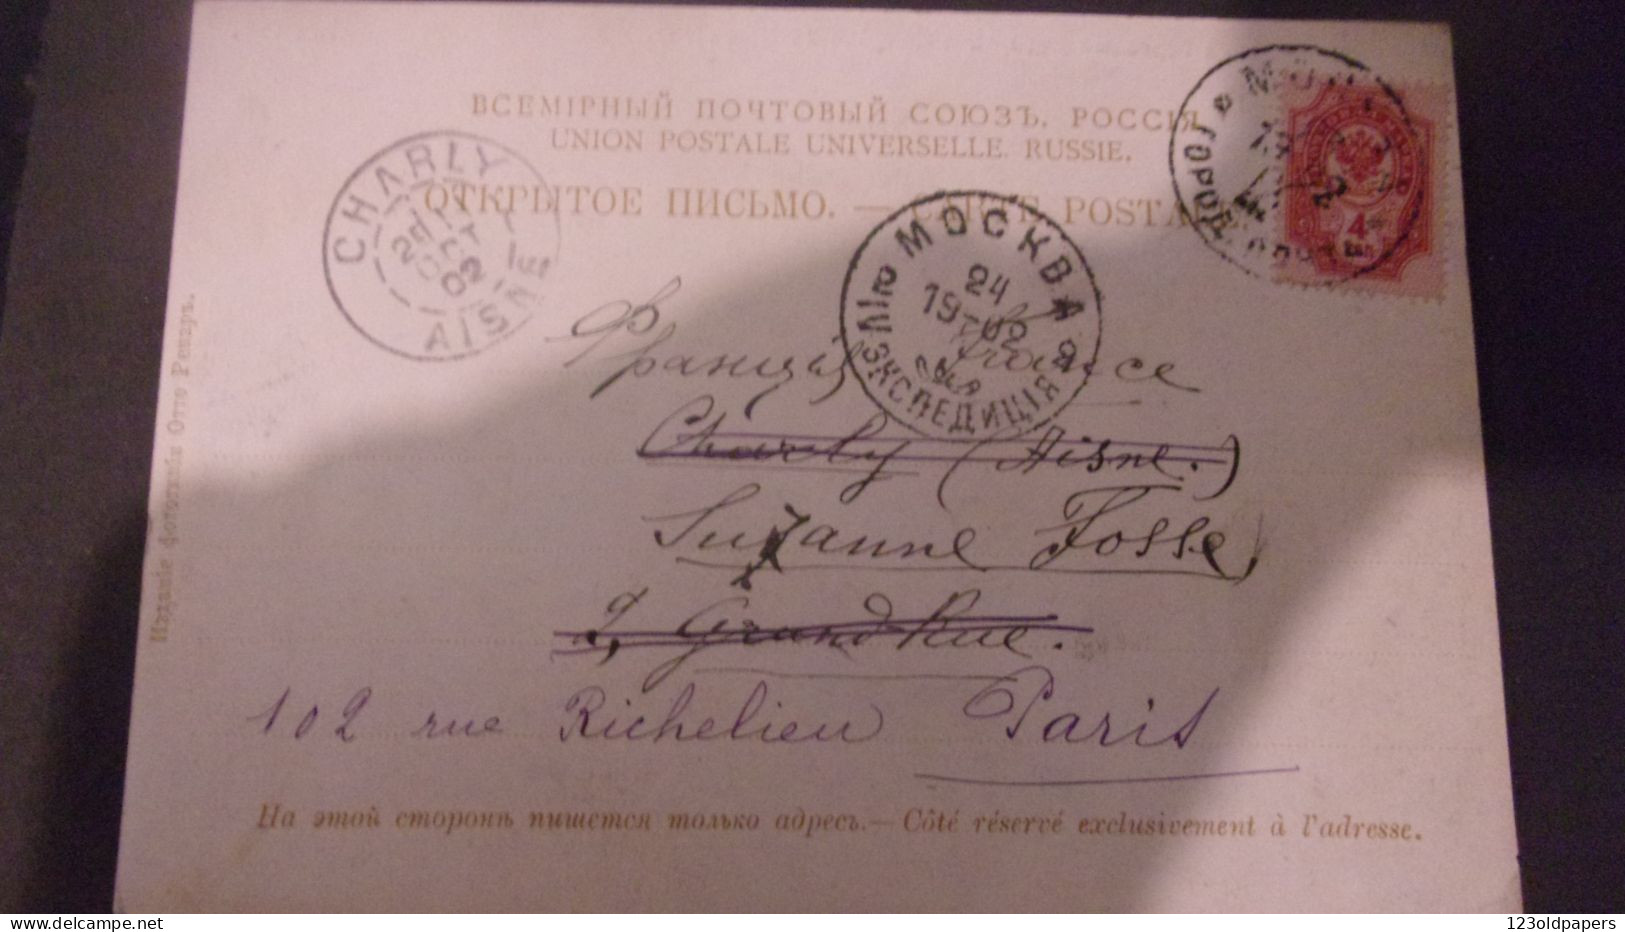 ВСЕМІРНЫЙ ПОЧТОВЫЙ СОЮЗЪ. РОССІЯ
UNION POSTALE UNIVERSELLE. RUSSIE.
ОТКРЫТОЕ ПИСЬМО. — CARTE POSTALE.
CHARLY
25
OCT
02
AISNE
МОСКВА
24
1902
ЭКСПЕДИЦІЯ
ГОРОД. ПОЧТА
4
Франція France
Charly (Aisne.)
Suzanne Fosse,
9, Grand Rue.
102 rue Richelieu Paris
На этой сторонѣ пишется только адресъ. — Côté réservé exclusivement à l'adresse.
Изданіе фототипіи Отто Ренаръ.
123oldpapers